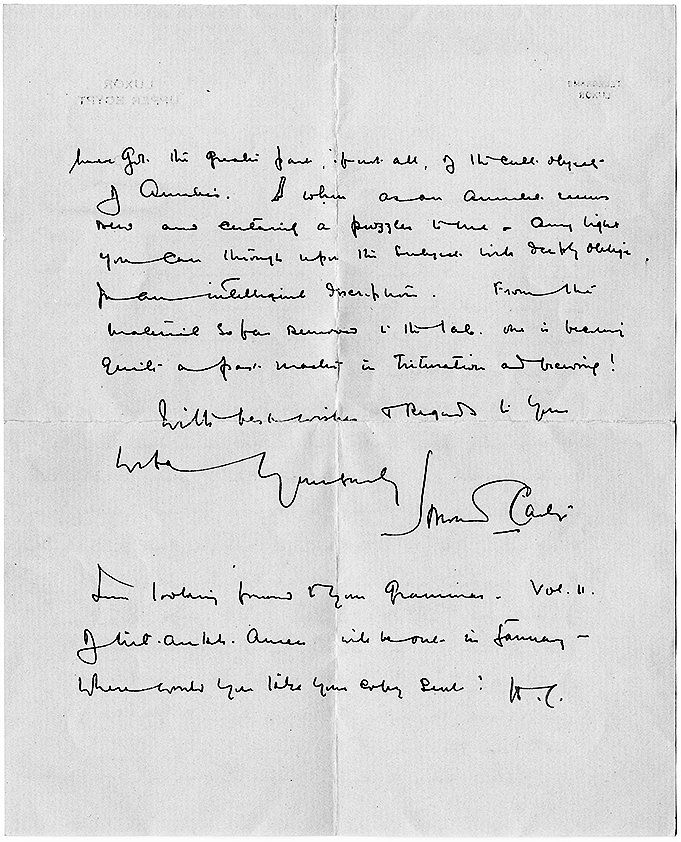 LUXOR
UPPER EGYPT
TELEGRAMS
LUXOR
have got the greater part, if not all, of the cult objects
of Anubis. A when as an Amulet seems
new and certainly a puzzle to me - Any light
you can through upon the subject will deeply oblige,
for an intelligent description. From the
material so far removed to the lab. one is becoming
quite a past master in trituration and brewing!
With best wishes & Regards to your
wife Yours sincerely
Howard Carter
I'm looking forward to your Grammar - Vol. II.
of Tut.ankh.Amen will be out in January —
Where would you like your copy sent? H.C.